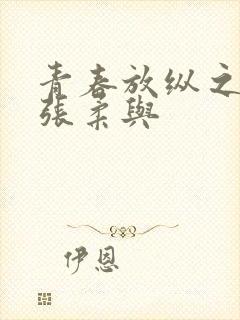 青春放纵之
张柔與
伊恩